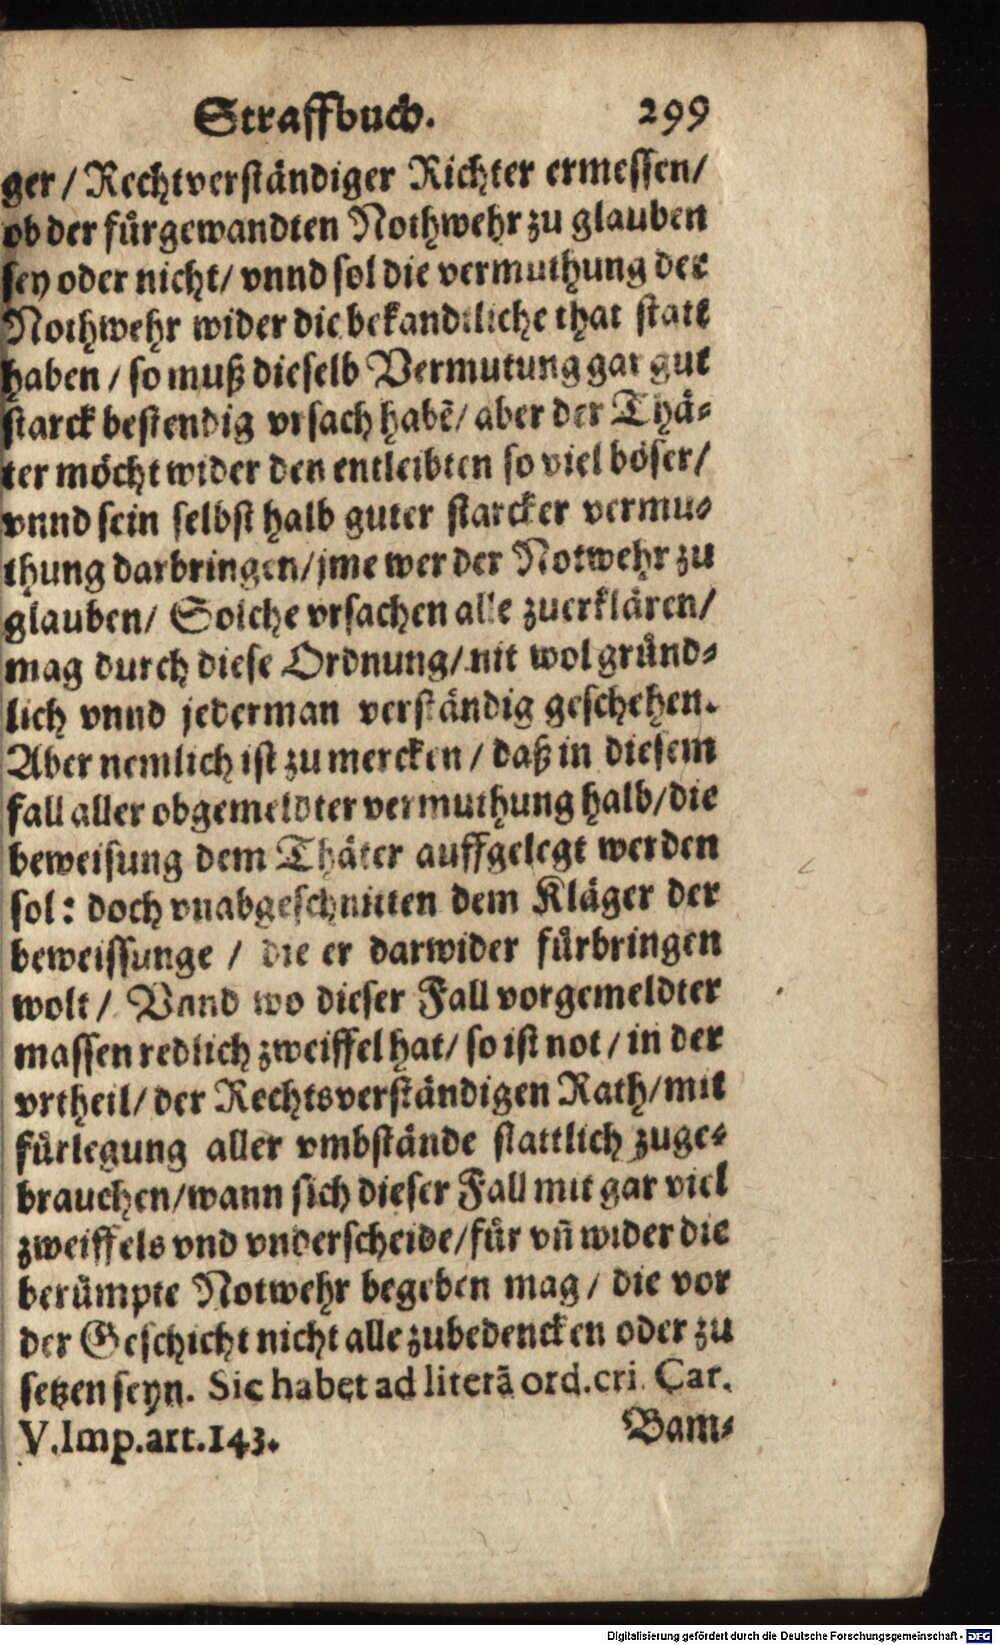 Straffbuch. 299
ger / Rechtverständiger Richter ermessen/
ob der fůrgewandten Nothwehr zu glauben
sey oder nicht/ vnnd sol die vermuthung der
Nothwehr wider die bekandtliche that statt
haben / so muß dieselb Vermutung gar gut
starck bestendig vrsach habē/ aber der Thä-
ter möcht wider den entleibten so viel böser/
vnnd sein selbst halb guter starcker vermu-
thung darbringen/jme wer der Notwehr zu
glauben/ Solche vrsachen alle zuerklären/
mag durch diese Ordnung/ nit wol gründ-
lich vnnd jederman verständig geschehen.
Aber nemlich ist zu mercken / daß in diesem
fall aller obgemeldter vermuthung halb/die
beweisung dem Thäter auffgelegt werden
sol: doch vnabgeschnitten dem Kläger der
beweissunge / die er darwider fůrbringen
wolt/ Vnnd wo dieser Fall vorgemeldter
massen redlich zweiffel hat/ so ist not / in der
vrtheil/ der Rechtsverständigen Rath/mit
fůrlegung aller vmbstände stattlich zuge-
brauchen/wann sich dieser Fall mit gar viel
zweiffels vnd vnderscheide/fůr vñ wider die
berümpte Notwehr begeben mag / die vor
der Geschicht nicht alle zubedencken oder zu
setzen seyn. Sic habet ad literā ord.cri. Car.
V.Imp.art.143. Bam-
Digitalisierung gefördert durch die Deutsche Forschungsgemeinschaft - DFG